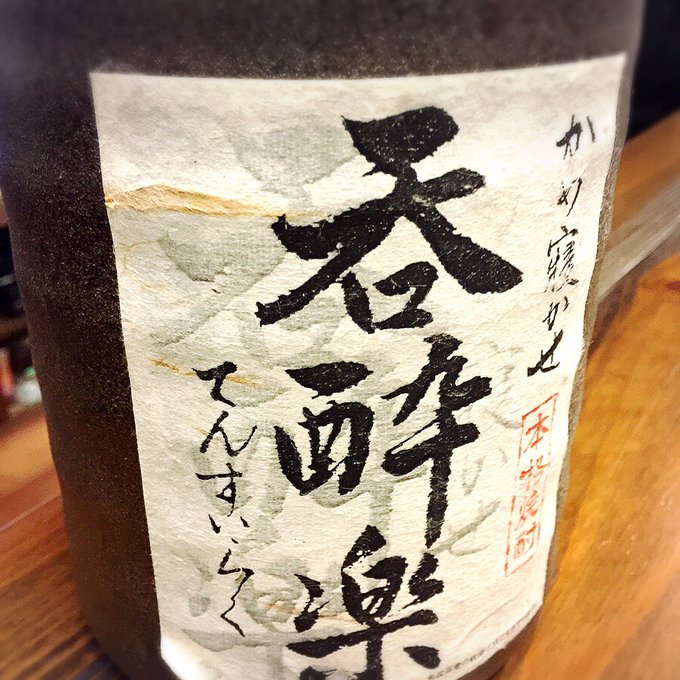 かめ寝かせ
本格焼酎
呑酔楽
てんすいらく